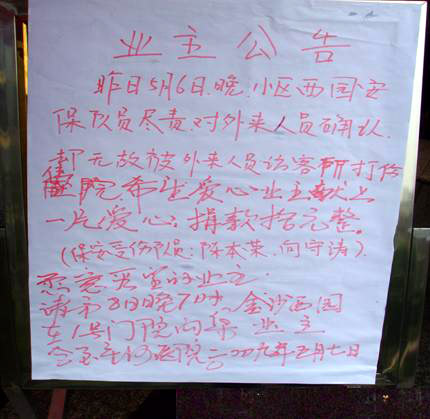 业主公告
昨日5月6日.晚.小区西国安
保队员尽责.对外来人员确认.
却无故被外来人员访客所打伤
住院.希生爱心业主献上
一片爱心:捐款拾元整。
(保安受伤队员:陈本荣.向守涛).
愿意 的业主.
请于8日晚7时.金沙西园
在1号门院内 业主
医院二〇〇九年五月七日